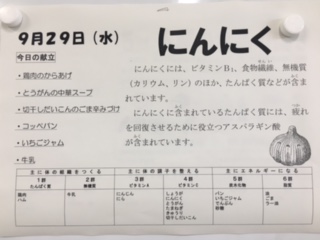 9月29日（水）
今日の献立
・鶏肉のからあげ
・とうがんの中華スープ
・切干しだいこんのごま辛みづけ
・コッペパン
・いちごジャム
・牛乳
にんにく
にんにくには、ビタミンB₁、食物繊維、無機質
（カリウム、リン）のほか、たんぱく質などが含ま
れています。
にんにくに含まれているたんぱく質には、疲れ
を回復させるために役立つアスパラギン酸
が含まれています。
主に体の組織をつくる 主に体の調子を整える 主にエネルギーになる
1群 2群 3群 4群 5群 6群
たんぱく質 無機質 ビタミンA ビタミンC 炭水化物 脂質
鶏肉 牛乳 にんじん にんにく パン 油
ハム しょうが いちごジャム ごま
とうがん でんぷん
たまねぎ 砂糖
きゅうり
切干しだいこん